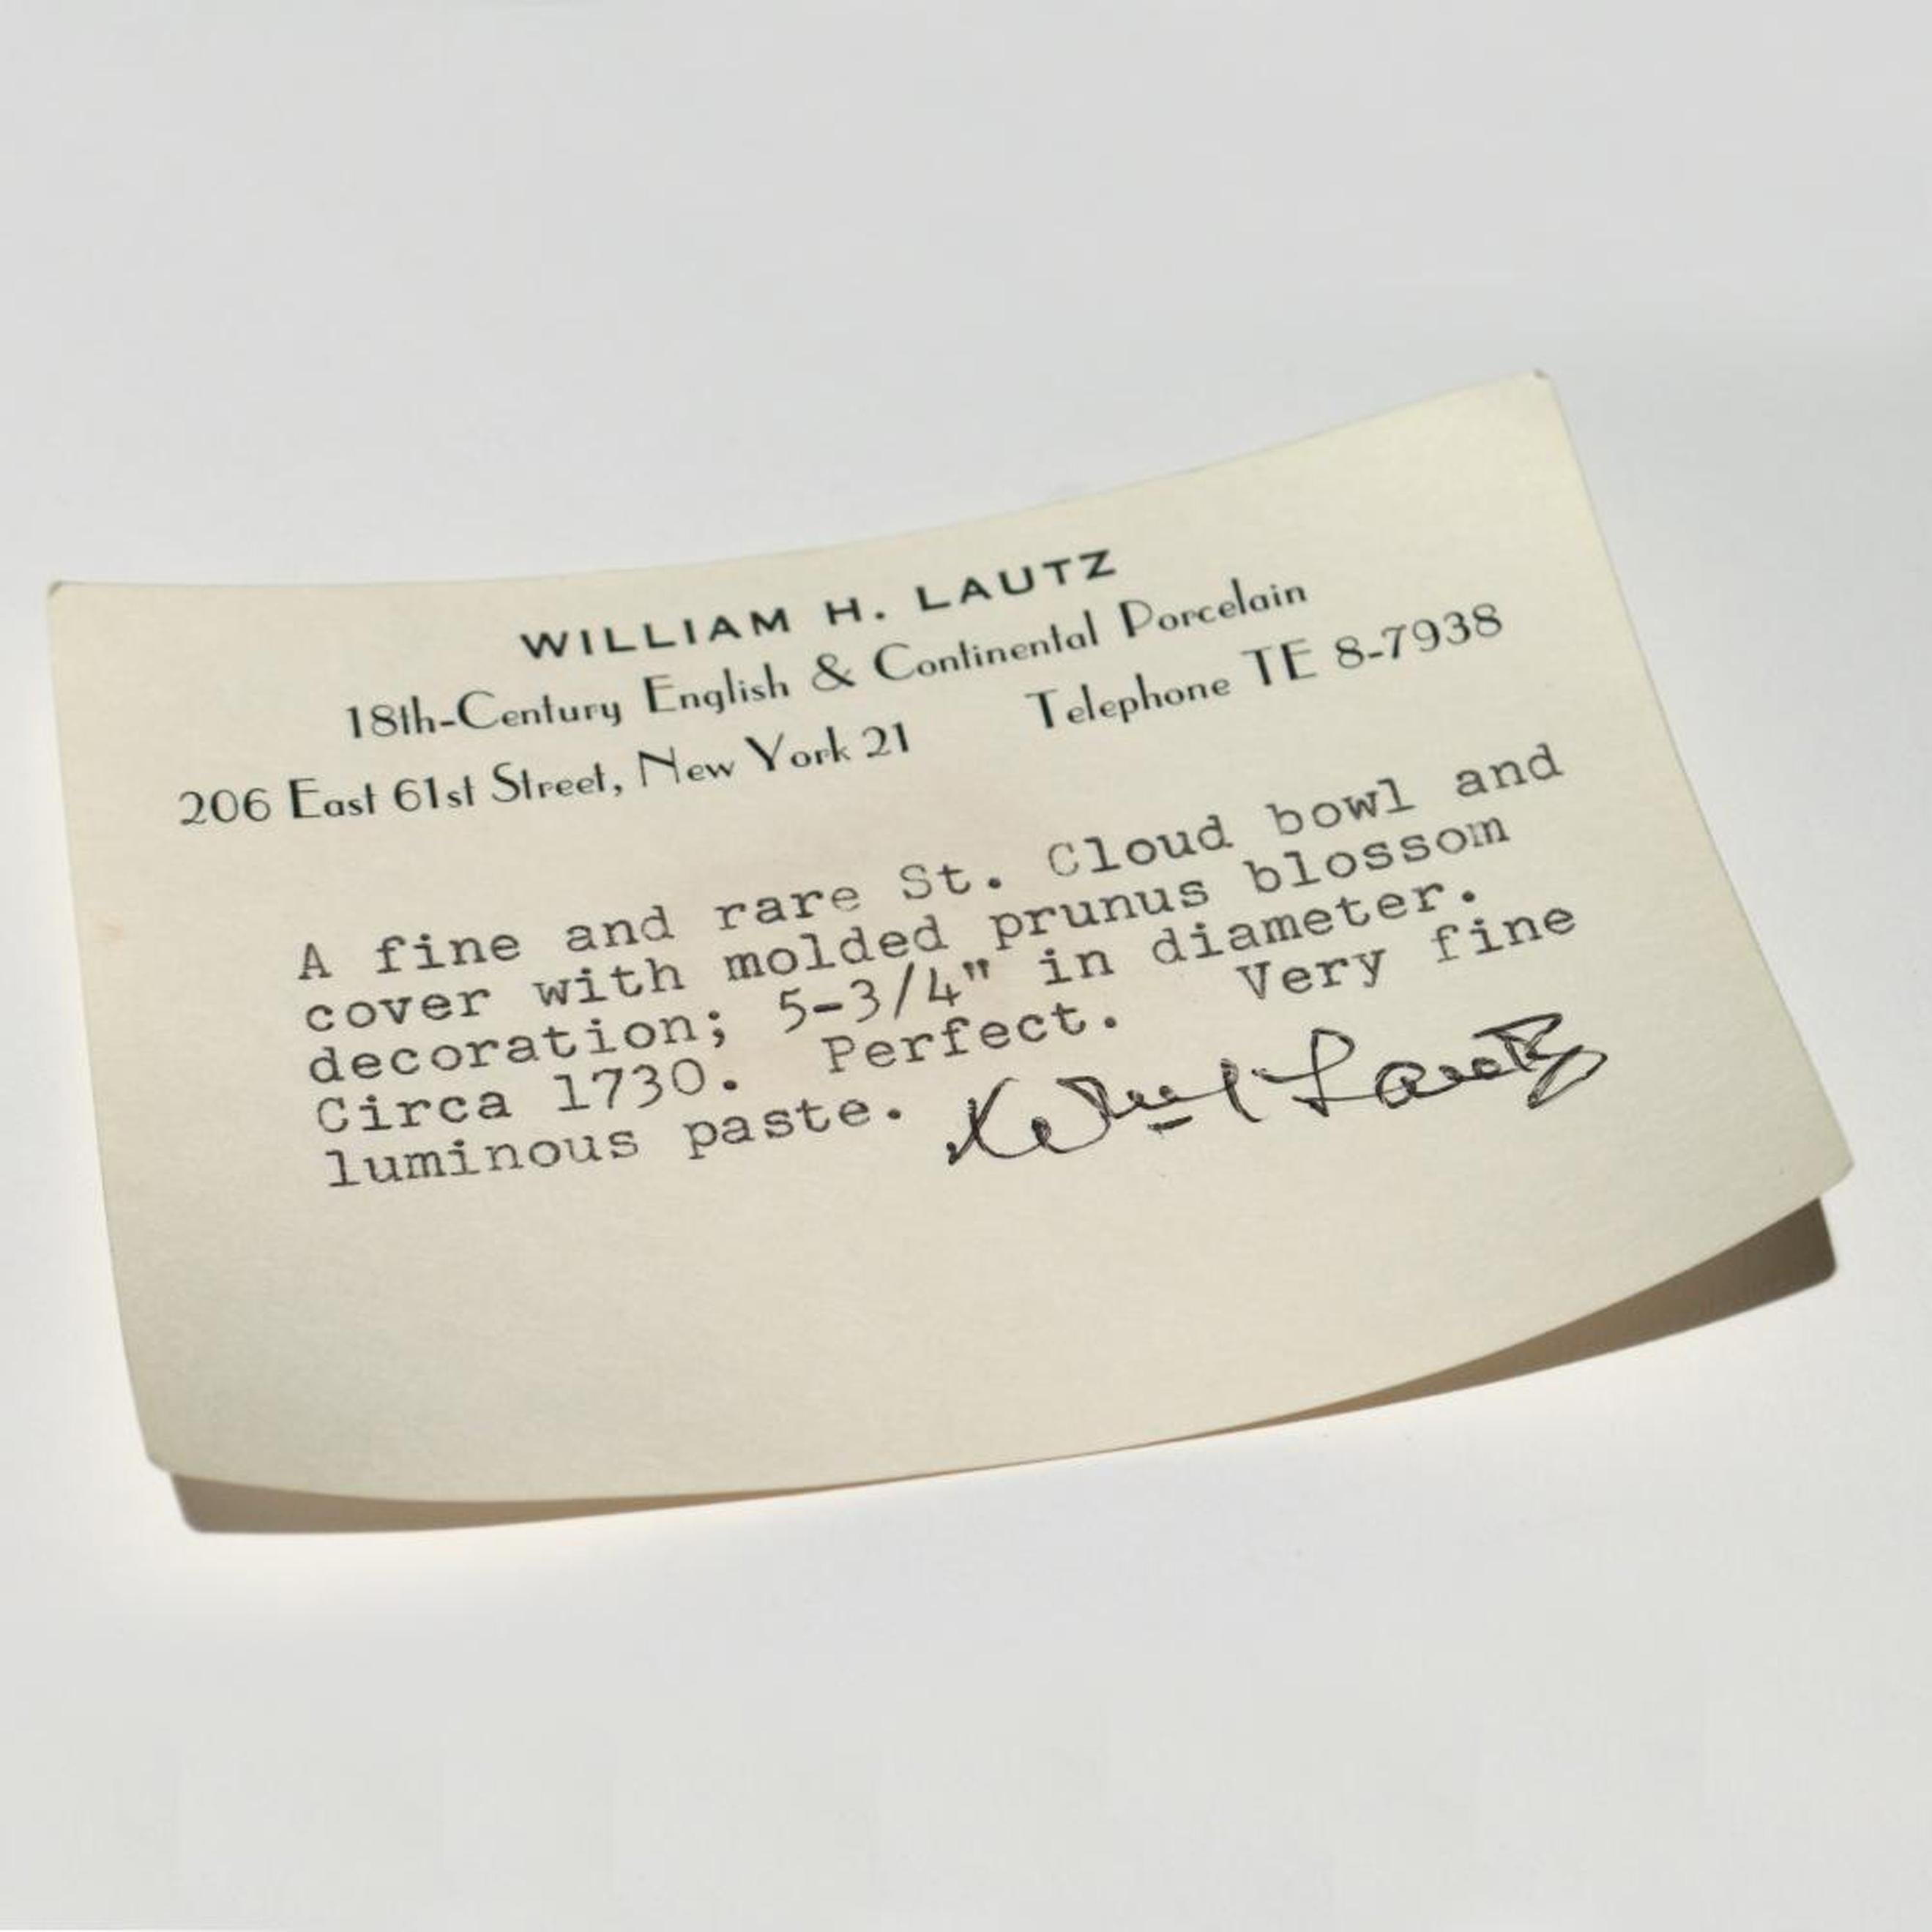 WILLIAM H. LAUTZ
18th-Century English & Continental Porcelain
206 East 61st Street, New York 21 Telephone TE 8-7938
A fine and rare St. Cloud bowl and
cover with molded prunus blossom
decoration; 5-3/4" in diameter.
Circa 1730. Perfect. Very fine
luminous paste.
Wm H Lautz